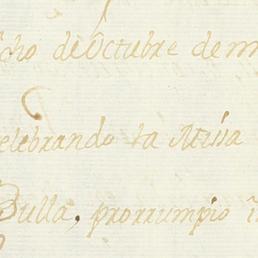 cho de Octubre de m
elebrando la Missa
Bulla, prorrumpio